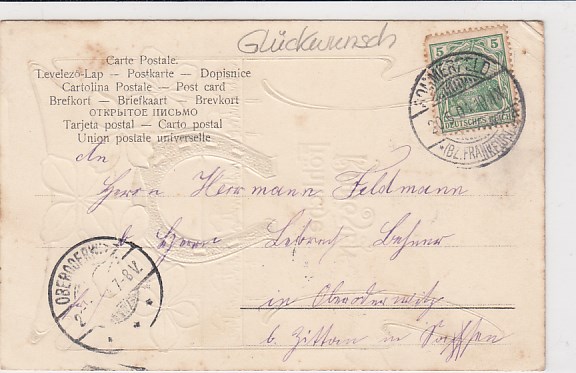 Glückwunsch
Carte Postale.
Levelezö-Lap — Postkarte — Dopisnice
Cartolina Postale — Post card
Brefkort — Briefkaart — Brevkort
ОТКРЫТОЕ ПИСЬМО
Tarjeta postal — Carto postal
Union postale universelle
5 5
SOMMERFELD
DEUTSCHES REICH
(BZ. FRANKFURT
An
Herrn Herrmann Feldmann
b. Herrn
in Oberoderwitz
b. Zittau in Sachsen
OBERODERWITZ
7-8V.